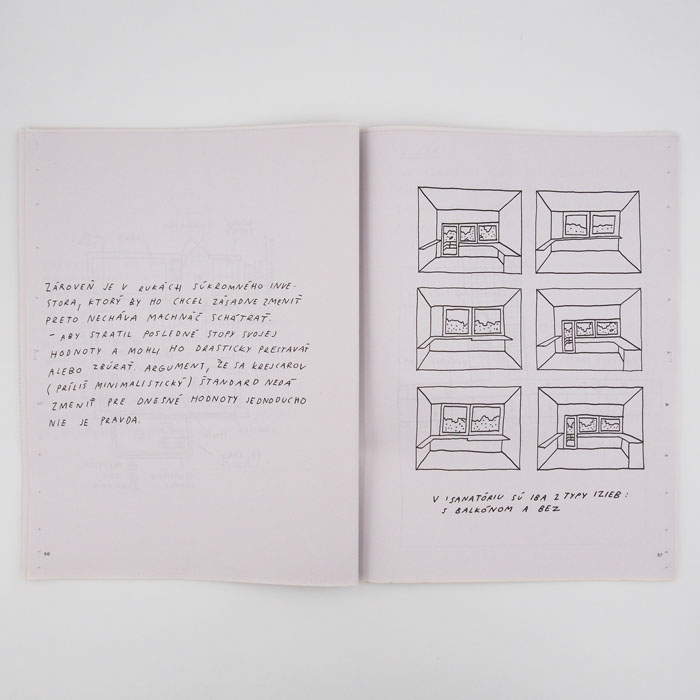 ZÁROVEŇ JE V RUKÁCH SÚKROMNÉHO INVE-
STORA, KTORÝ BY HO CHCEL ZÁSADNE ZMENIŤ
PRETO NECHÁVA MACHNÁČ SCHÁTRAŤ.
- ABY STRATIL POSLEDNÉ STOPY SVOJEJ
HODNOTY A MOHLI HO DRASTICKY PRESTAVAŤ
ALEBO ZBÚRAŤ. ARGUMENT, ŽE SA KREJCAROV
(PRÍLIŠ MINIMALISTICKÝ) ŠTANDARD NEDÁ
ZMENIŤ PRE DNEŠNÉ HODNOTY JEDNODUCHO
NIE JE PRAVDA.
56
V SANATÓRIU SÚ IBA 2 TYPY IZIEB:
S BALKÓNOM A BEZ
57